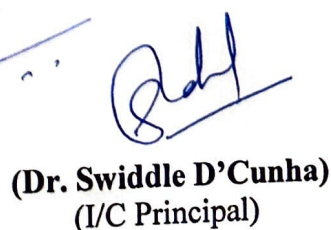 (Dr. Swiddle D’Cunha)
(I/C Principal)